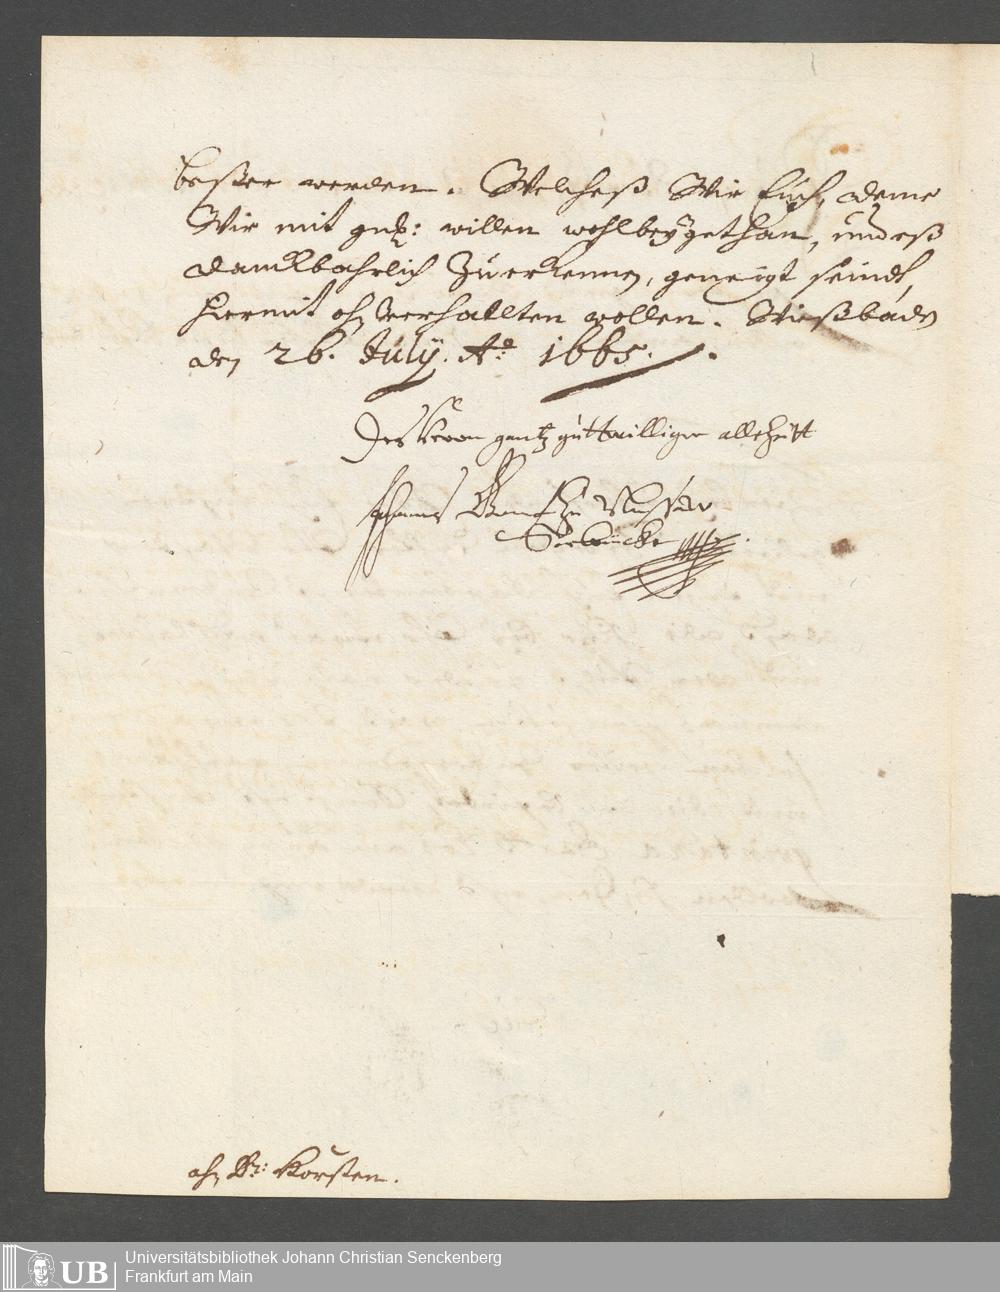 beßer werden. Welcheß Wir Euch, deme
Wir mit gnd: willen wohlbeÿgethan, und eß
danckbahrlich zu erkennen, geneigt seindt,
hiermit ohnverhallten wollen. Wießbaden
den 26. Julÿ. Ao: 1665.
Des Herrn gantz guttwilliger allezeitt
Johannes Graff zu Nassaw
Sarbrücken
ahn Dr: Horsten.
Universitätsbibliothek Johann Christian Senckenberg
Frankfurt am Main
UB